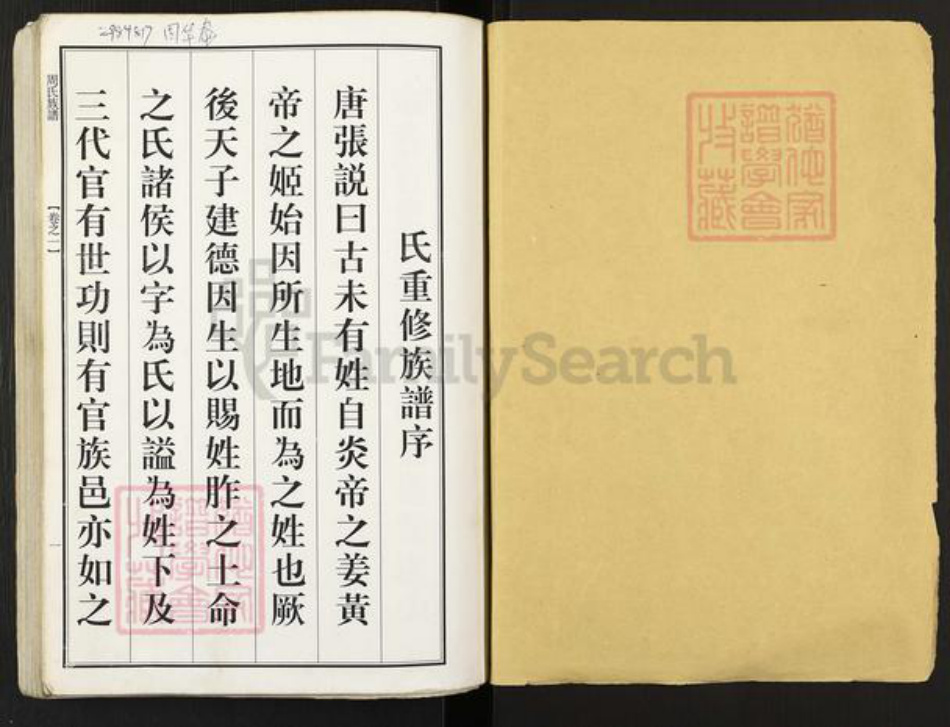 氏重修族譜序
唐張説曰古未有姓自炎帝之姜黃
帝之姬始因所生地而為之姓也厥
後天子建德因生以賜姓胙之土命
之氏諸侯以字為氏以謚為姓下及
三代官有世功則有官族邑亦如之
周氏族譜
【卷之一】
一
FamilySearch